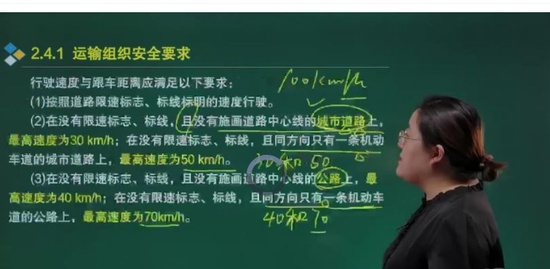 2.4.1 运输组织安全要求
行驶速度与跟车距离应满足以下要求：
100km/h
(1)按照道路限速标志、标线标明的速度行驶。
(2)在没有限速标志、标线，且没有施画道路中心线的城市道路上，
最高速度为30 km/h；在没有限速标志、标线，且同方向只有一条机动
车道的城市道路上，最高速度为50 km/h。
50
(3)在没有限速标志、标线，且没有施画道路中心线的公路上，最
高速度为40 km/h；在没有限速标志、标线，且同方向只有一条机动车
道的公路上，最高速度为70km/h。
40和70